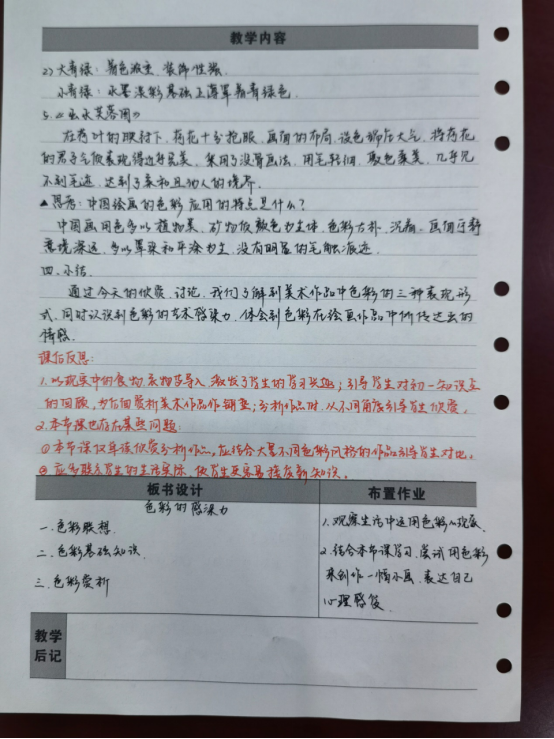 教学内容
2) 大青绿：着色浓重，装饰性强。
小青绿：水墨淡彩基础上薄罩青绿色。
5.《出水芙蓉图》
在荷叶的映衬下，荷花十分抢眼，画面的布局、设色端庄大气，将荷花
的君子气质表现得近乎完美，采用了没骨画法，用笔轻细，敷色柔美，几乎见
不到笔迹，达到了柔和且动人的境界。
▲思考：中国绘画的色彩应用的特点是什么？
中国画用色多以植物类、矿物质颜色为主体，色彩古朴、沉着，画面宁静
意境深远，多以晕染和平涂为主，没有明显的笔触痕迹。
四、小结
通过今天的欣赏、讨论，我们了解到美术作品中色彩的三种表现形
式，同时认识到色彩的艺术感染力，体会到色彩在绘画作品中所传达出的
情感。
课后反思：
1. 以现实中的食物、衣物等导入，激发了学生的学习兴趣；引导学生对初一知识点
的回顾，为后面赏析美术作品作铺垫；分析作品时，从不同角度引导学生欣赏。
2. 本节课也存在某些问题：
①本节课仅单该欣赏分析作品，应结合大量不同色彩风格的作品引导学生对比。
②应多联系学生的生活实际，使学生更容易接受新知识。
板书设计
布置作业
色彩的感染力
一、色彩联想
二、色彩基础知识
三、色彩赏析
1. 观察生活中运用色彩的现象
2. 结合本节课学习，尝试用色彩
来创作一幅小画，表达自己
心理感受
教学
后记